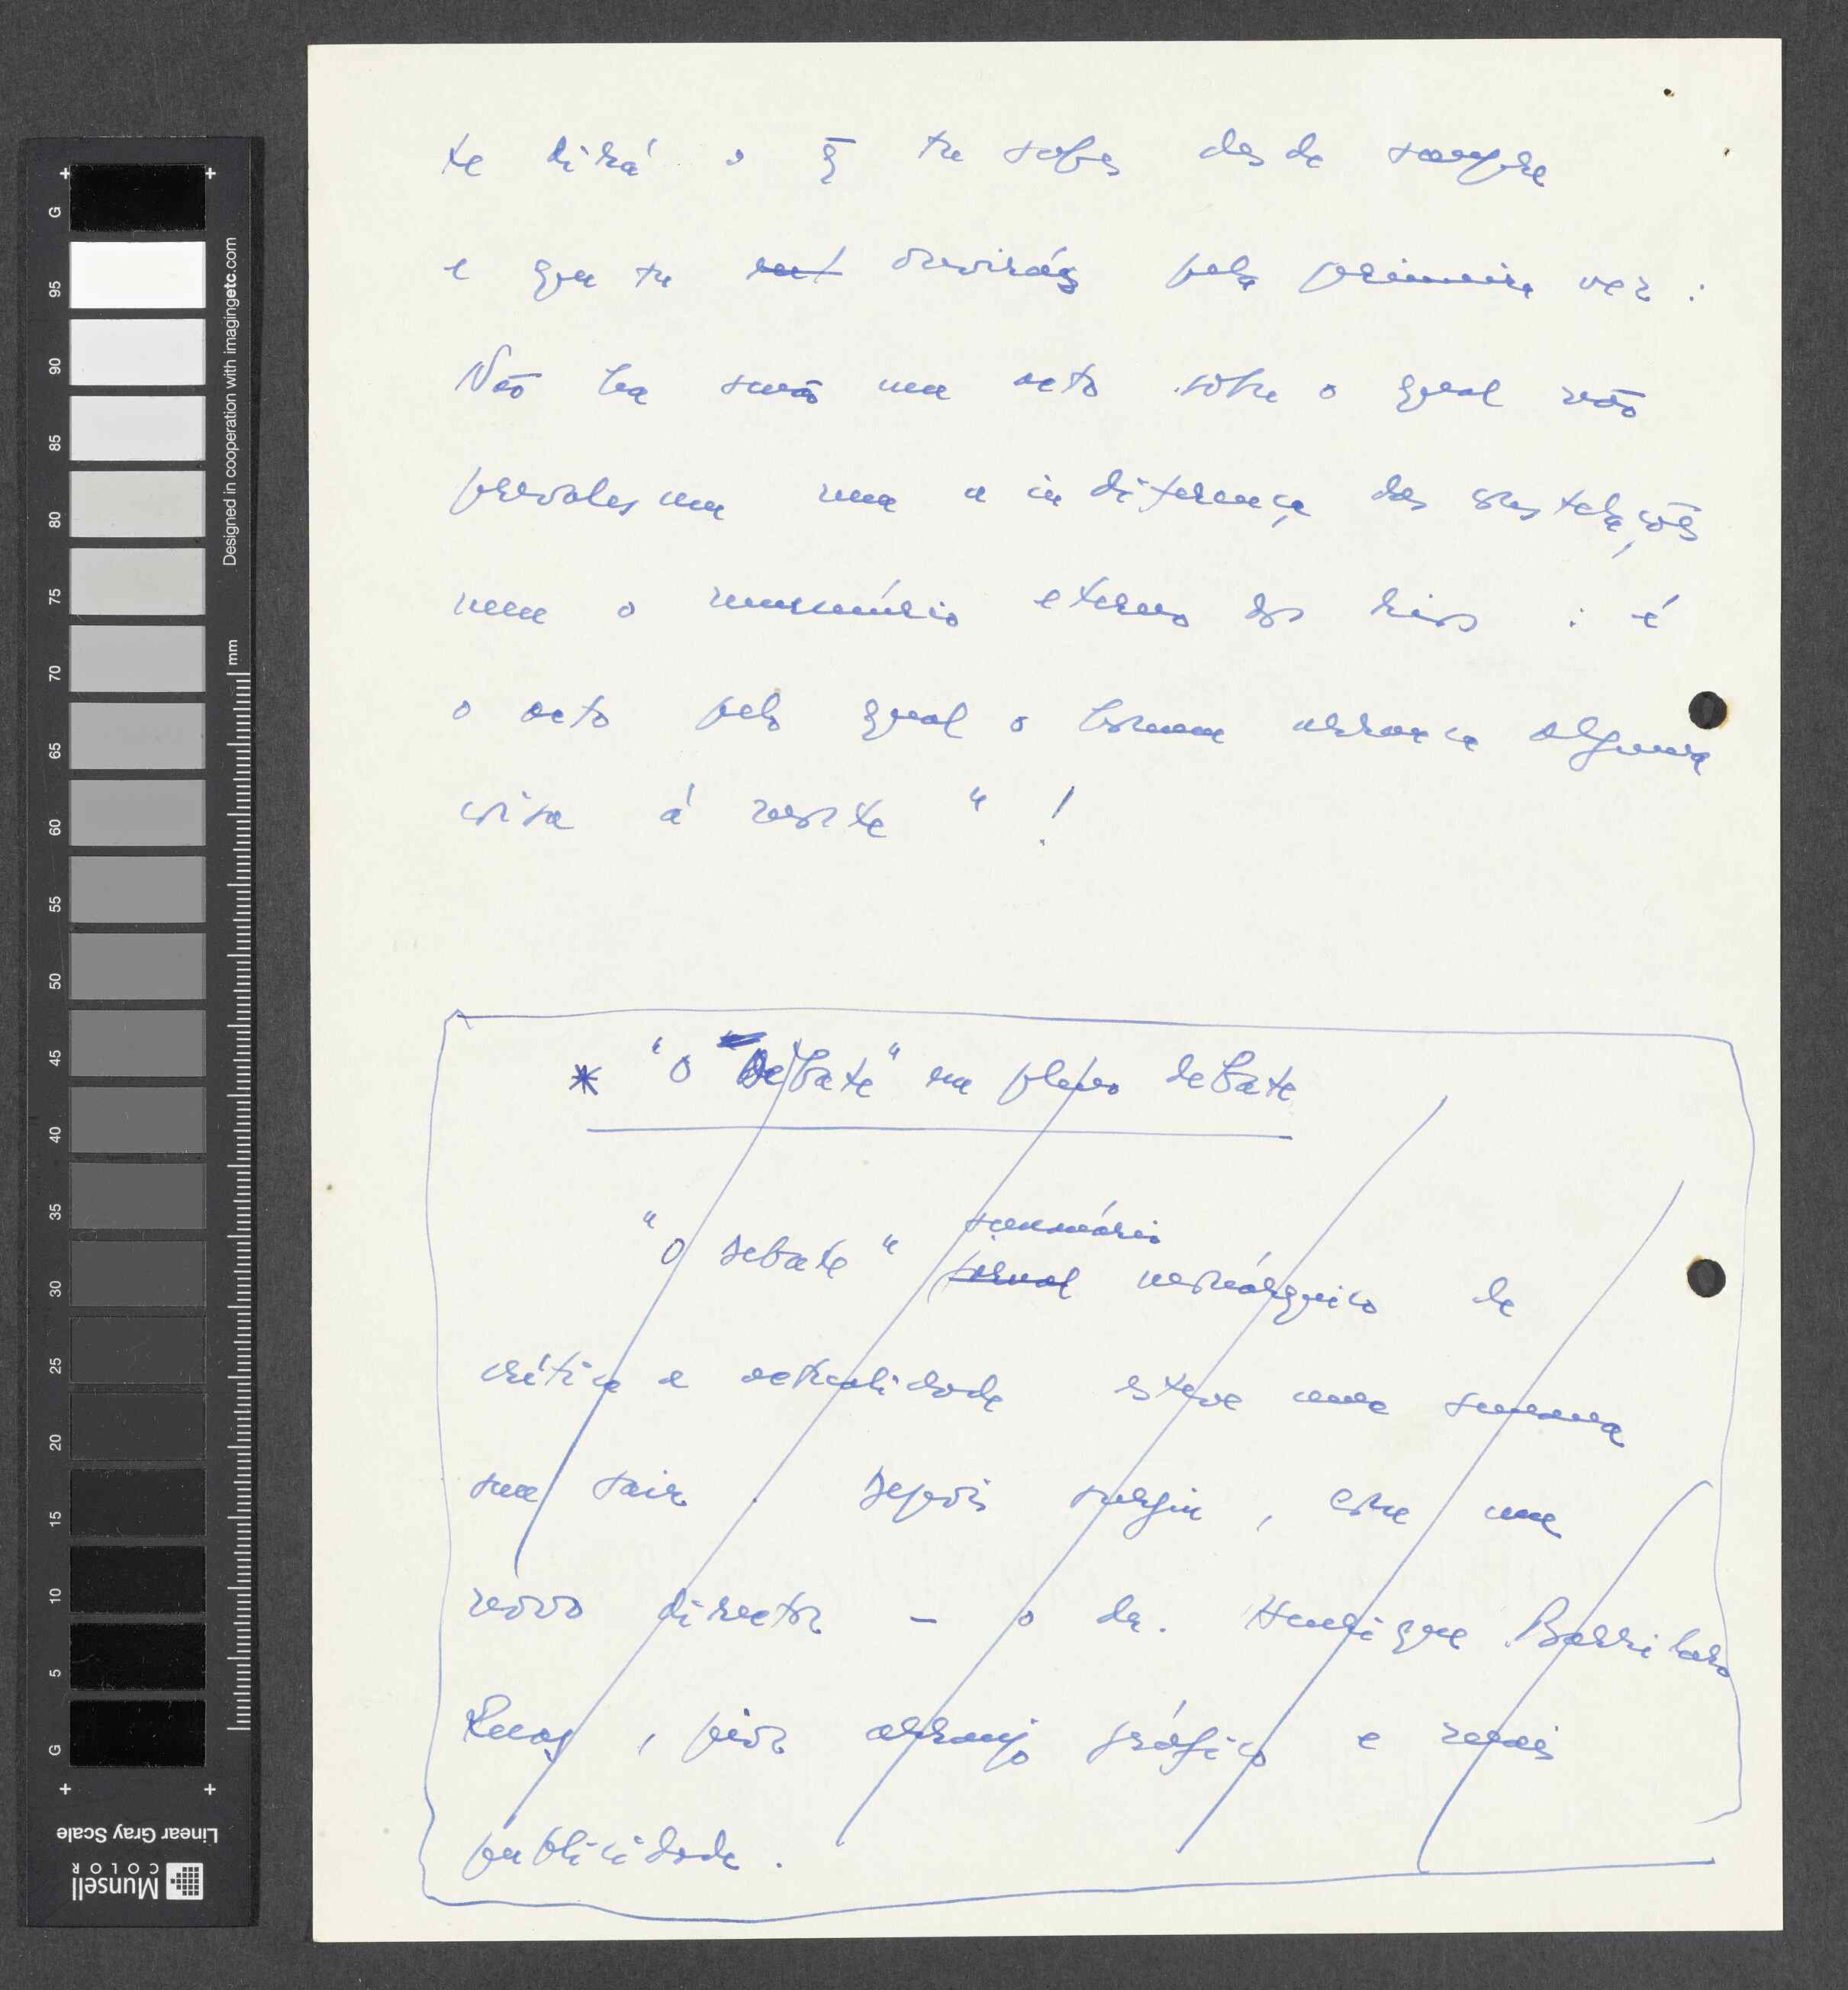 te dirá o q̄ tu sabes desde sempre
e que tu ouvirás pela primeira vez :
Não há senão um acto sobre o qual não
prevalesçam nem a indiferença das constelações
nem o murmúrio eterno dos rios : é
o acto pelo qual o homem arranca alguma
coisa à morte " !
* "O Debate" em pleno debate
semanário
"O Debate" jornal monárquico de
crítica e actualidade esteve uma semana
sem sair . Depois surgiu , com um
nôvo director – o dr. Henrique Barrilaro
Ruas , pior arranjo gráfico e mais
publicidade .
G 95 90 85 80 75 70 65 60 55 50 45 40 35 30 25 20 15 10 5 G
Designed in cooperation with imagingetc.com
mm
Linear Gray Scale
Munsell
COLOR